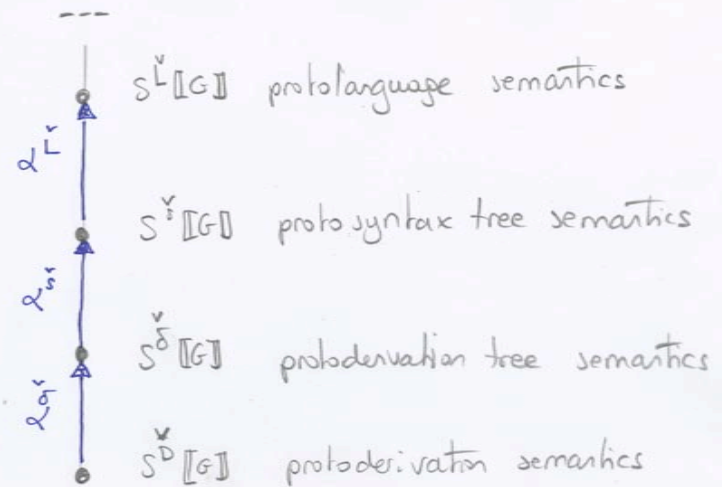 S^Ľ⟦G⟧ protolanguage semantics
S^š⟦G⟧ protosyntax tree semantics
S^δ̌⟦G⟧ protoderivation tree semantics
S^Ď⟦G⟧ protoderivation semantics